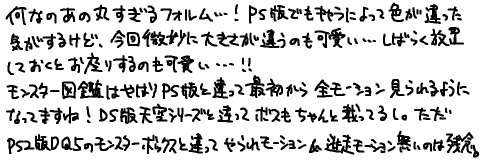 何なのあの丸すぎるフォルム…！PS版でもキャラによって色が違った
気がするけど、今回微妙に大きさが違うのも可愛い…しばらく放置
しておくとお座りするのも可愛い…!!
モンスター図鑑はやはりPS版と違って最初から全モーション見られるように
なってますね！DS版天空シリーズと違ってボスもちゃんと載ってるし。ただ
PS2版DQ5のモンスターボックスと違ってやられモーションや逃走モーション無いのは残念。